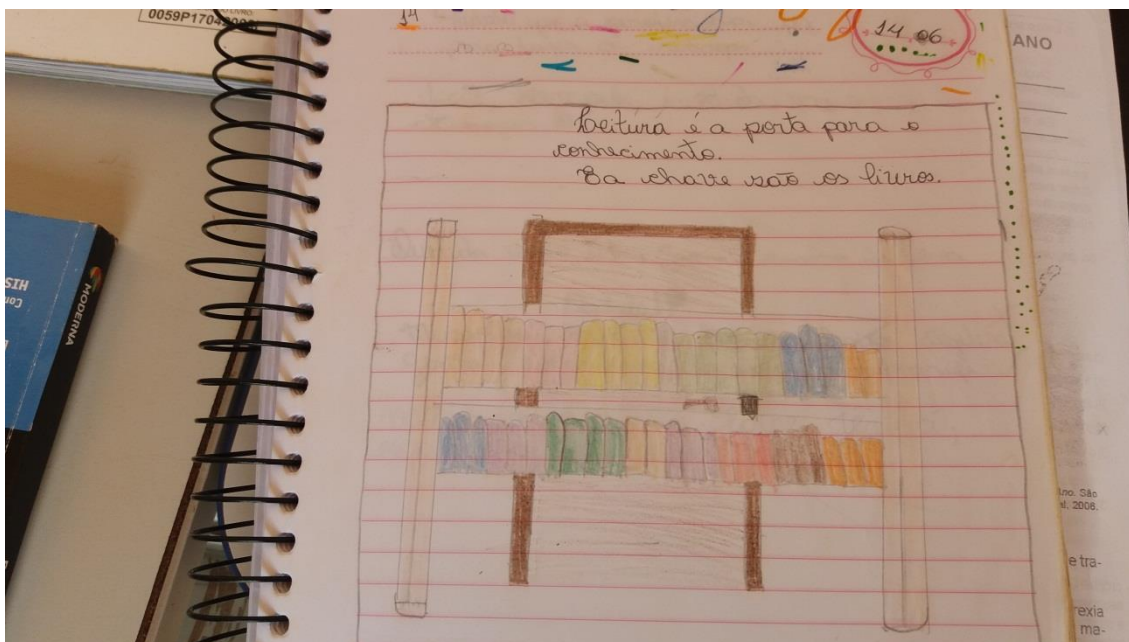 0059P1704
14
14.06
ANO
Leitura é a porta para o
conhecimento.
E a chave são os livros.
HIS
Con
MODERNA
no. São
2006.
e tra-
rexia
ma-